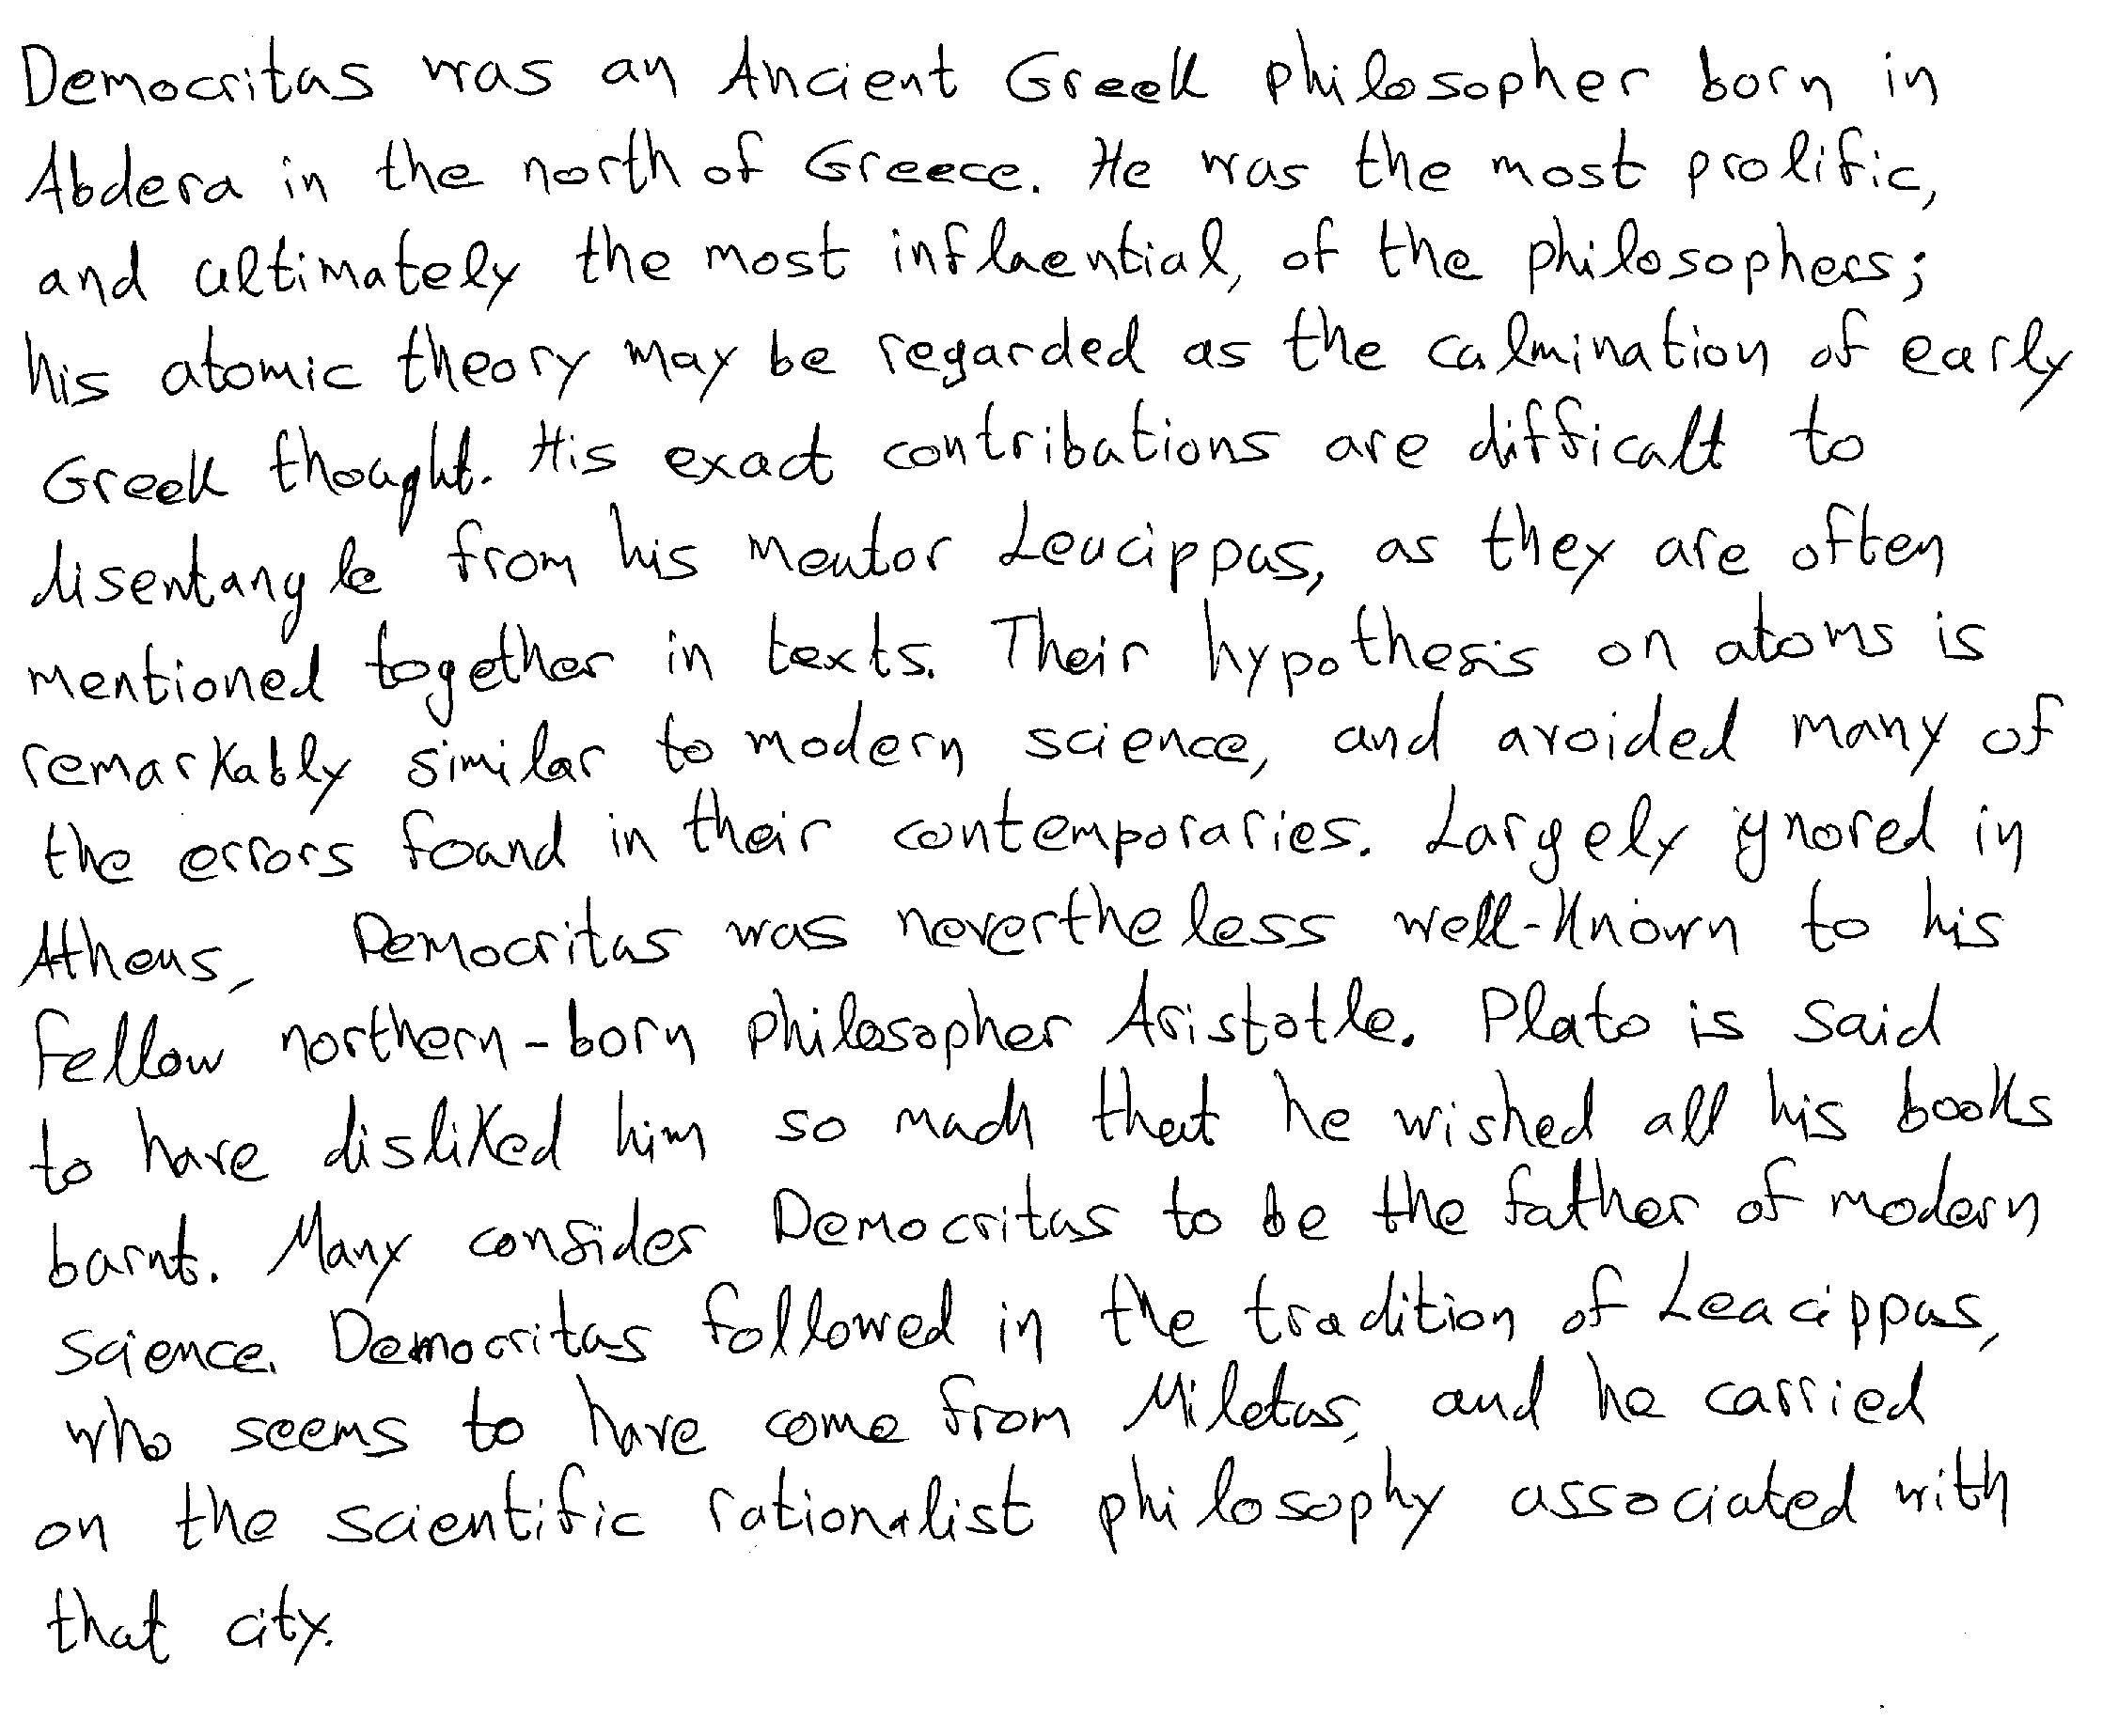 Democritus was an Ancient Greek philosopher born in
Abdera in the north of Greece. He was the most prolific,
and ultimately the most influential, of the philosophers;
his atomic theory may be regarded as the culmination of early
Greek thought. His exact contributions are difficult to
disentangle from his mentor Leucippus, as they are often
mentioned together in texts. Their hypothesis on atoms is
remarkably similar to modern science, and avoided many of
the errors found in their contemporaries. Largely ignored in
Athens, Democritus was nevertheless well-known to his
fellow northern-born philosopher Aristotle. Plato is said
to have disliked him so much that he wished all his books
burnt. Many consider Democritus to be the father of modern
science. Democritus followed in the tradition of Leucippus,
who seems to have come from Miletus, and he carried
on the scientific rationalist philosophy associated with
that city.